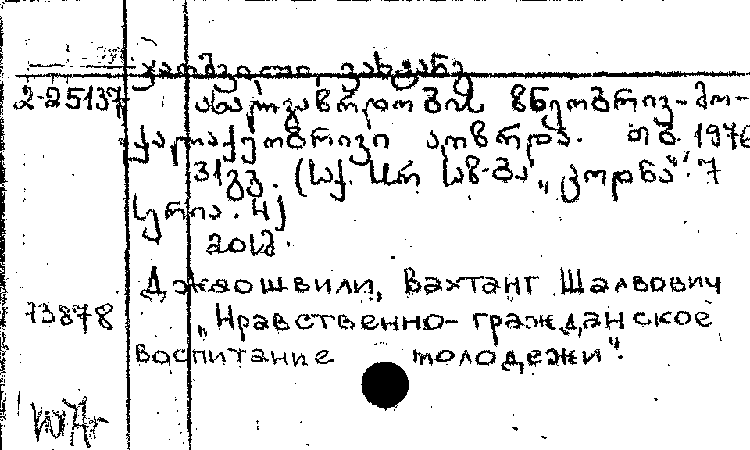 ჯაოშვილი, ვახტანგ
2-25137 ახალგაზრდობის ზნეობრივ-მო-
ქალაქეობრივი აღზრდა. თბ. 1976
31გვ. (საქ. სსრ საზ-ბა „ცოდნა". 7
სერია. 4)
20სმ.
Джаошвили, Вахтанг Шалвович
73878 „Нравственно-гражданское
воспитание молодежи".